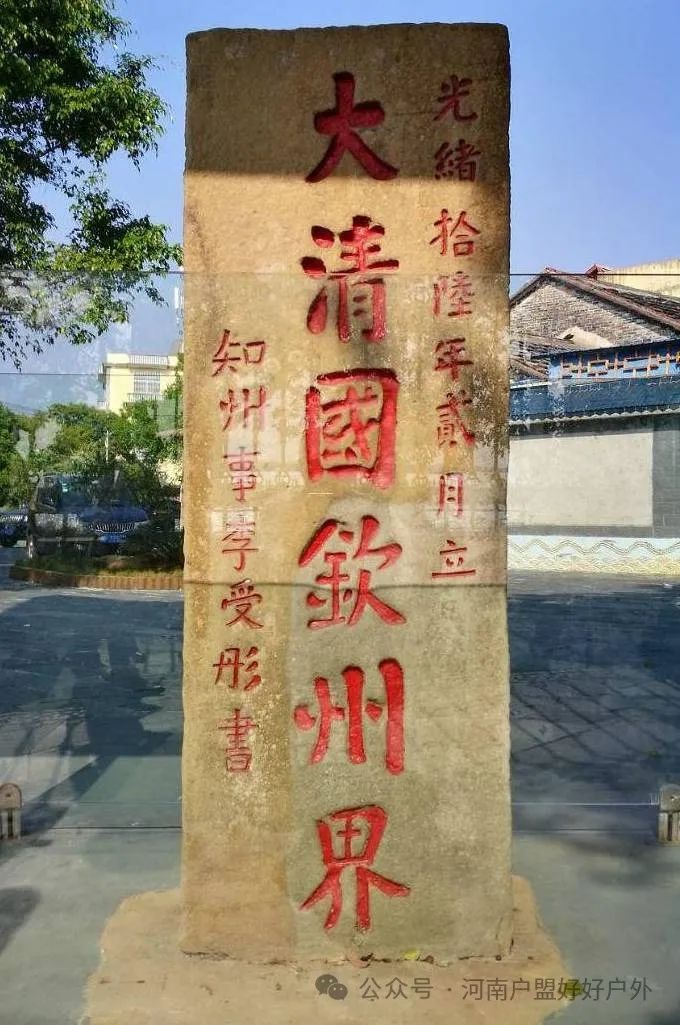 光緒拾陸年貳月立
大清國欽州界
知州事李受彤書
公众号 · 河南户盟好好户外